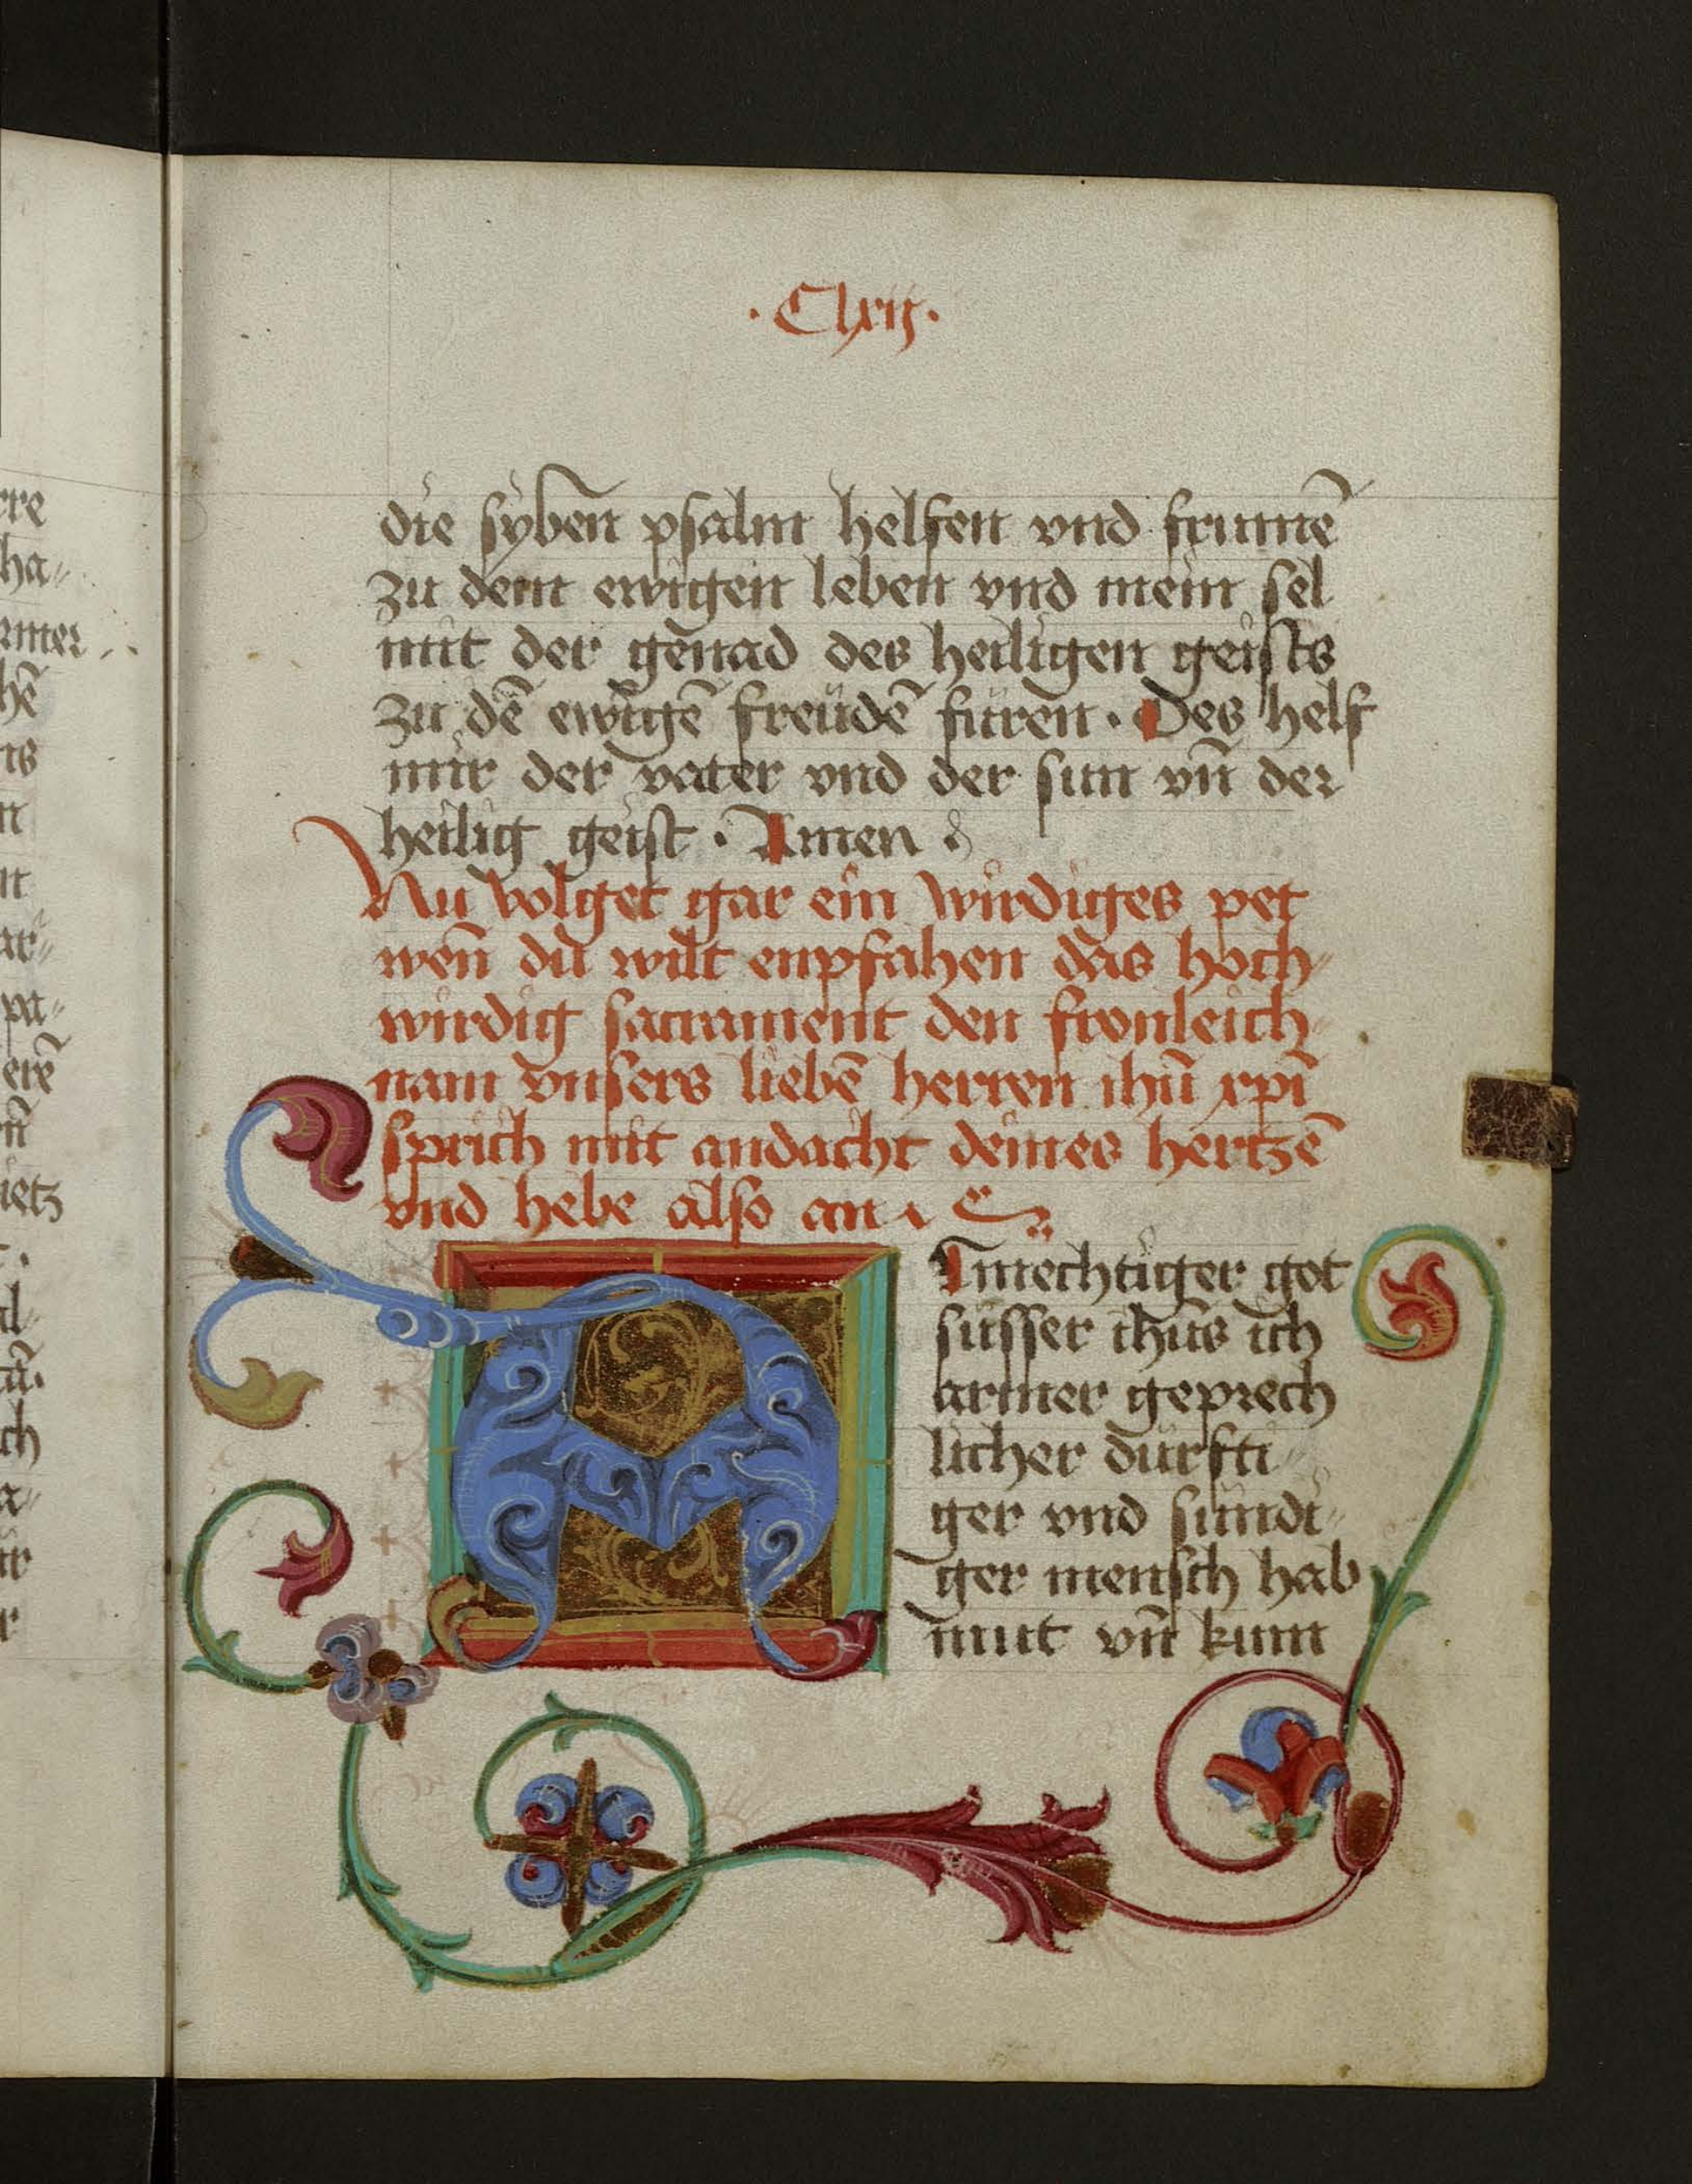 · Clxij ·
die syben psalm helfen vnd frumē
zu dem ewigen leben vnd mein sel
mit der genad des heiligen geists
zu dē ewigē freüdē füren · Des helf
mir der vater vnd der sun vn̄ der
heilig geist · Amen
Nu volget gar ein wirdiges pet
wen̄ du wilt enpfahen das hoch-
wirdig sacrament den fronleich-
nam vnsers liebē herren ihū xpī
sprich mit andacht deines hertzē
vnd hebe also an ·
Almechtiger got
süsser ihūs ich
armer geprech
licher dürfti-
ger vnd sündi-
ger mensch hab
mut vn̄ kum